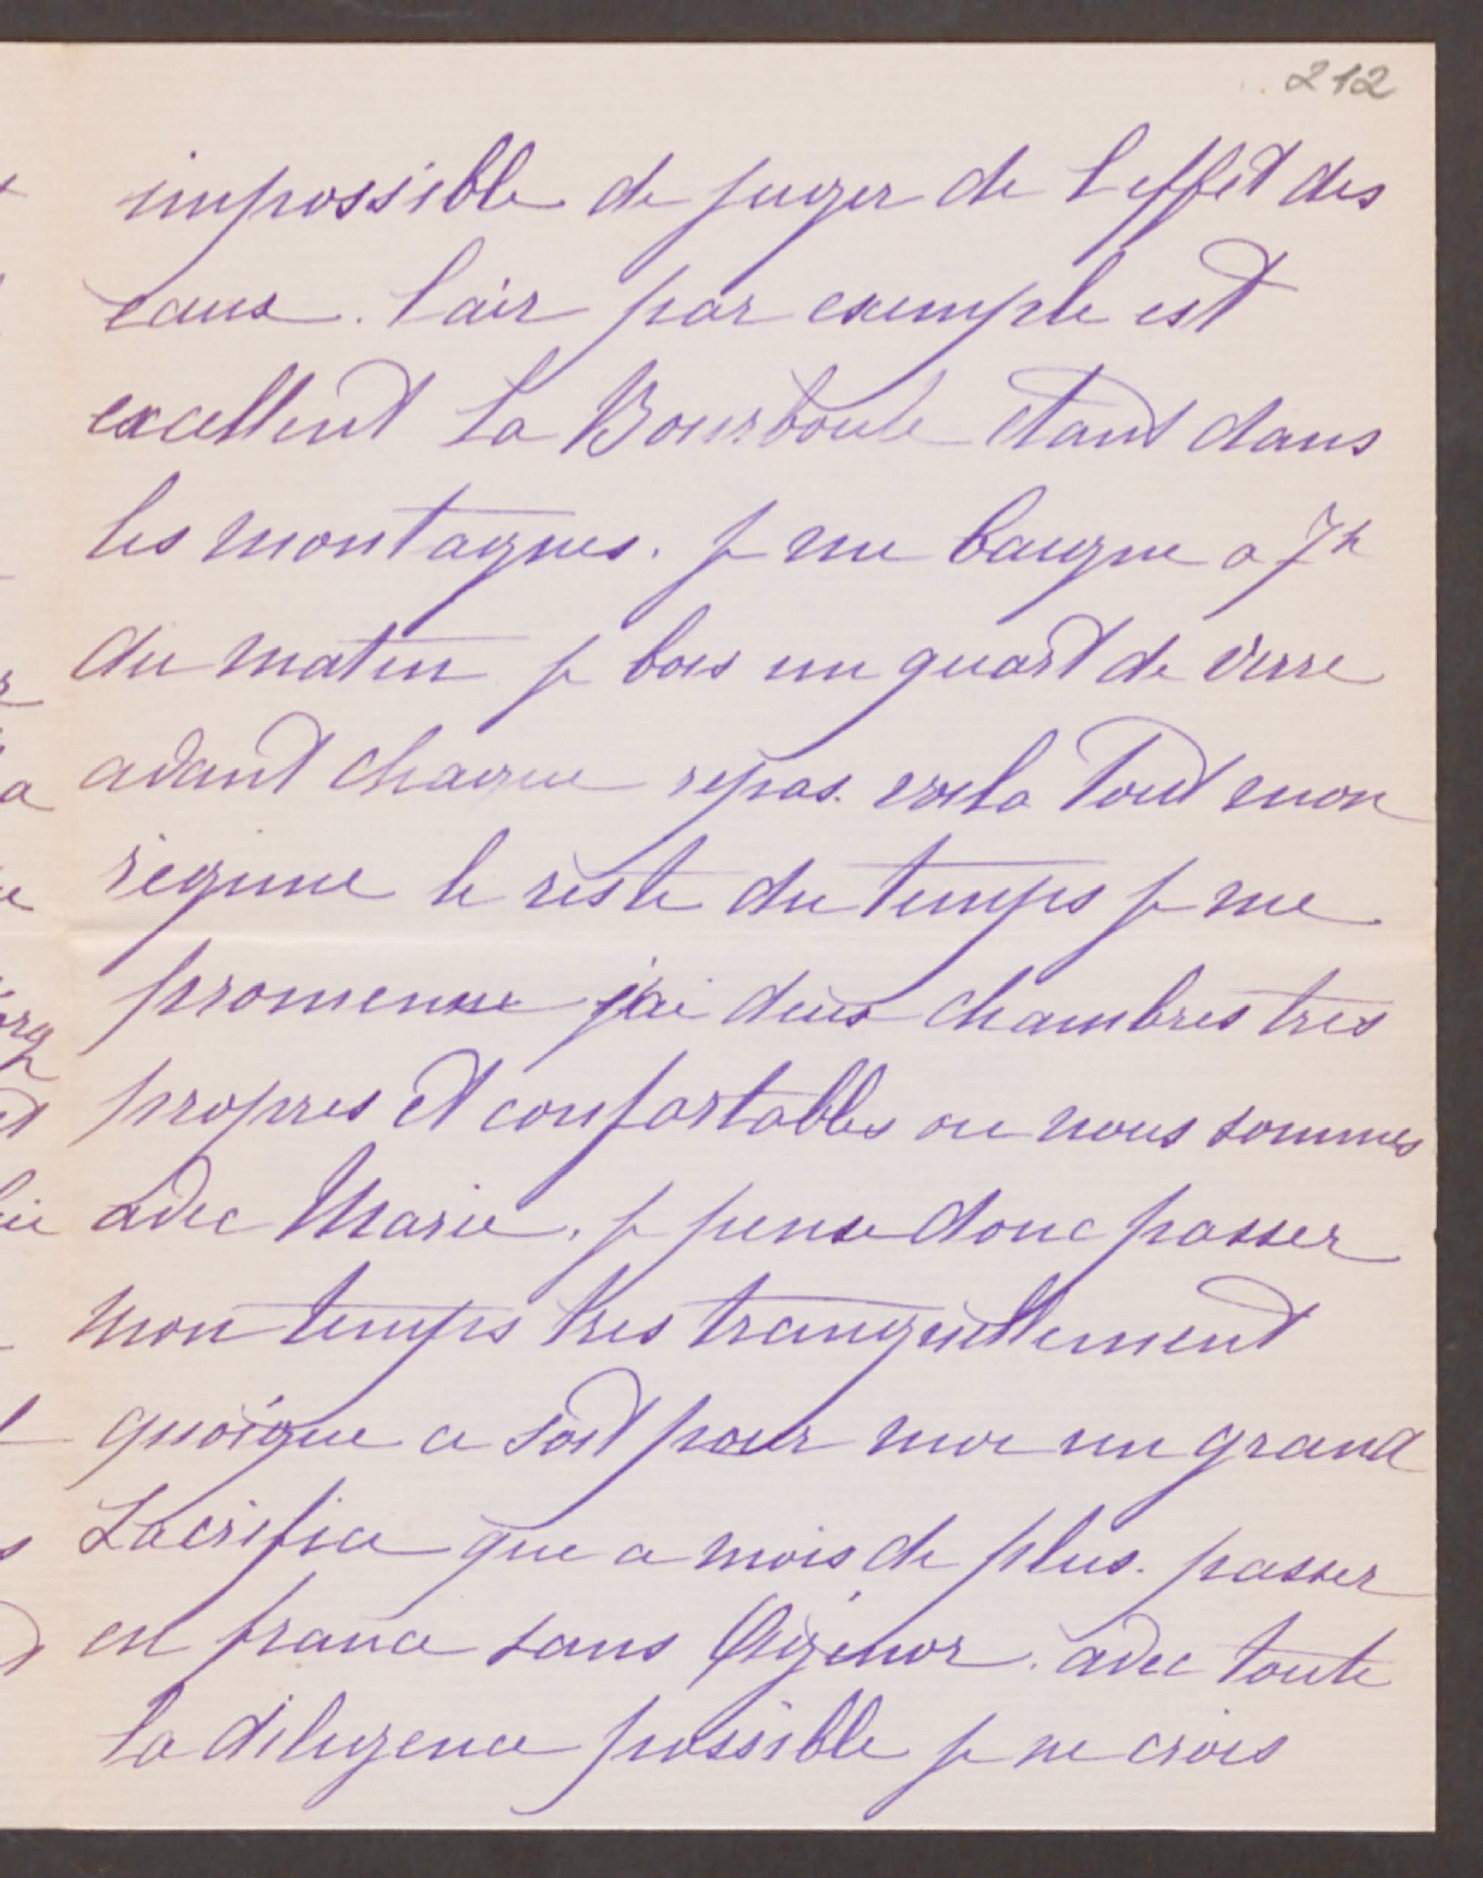 212
impossible de juger de l'effet des
eaux. l'air par exemple est
excellent La Bourboule etant dans
les montagnes. je me baigne a 7h
du matin je bois un quart de verre
avant chaque repas. voila tout mon
regime le reste du temps je me
promenne j'ai deux chambres tres
propres et confortables ou nous sommes
avec Marie. je pense donc passer
mon temps tres tranquillement
quoique ce soit pour moi un grand
Sacrifice que ce mois de plus. passer
en france sans Agénor. avec toute
la diligence possible je ne crois